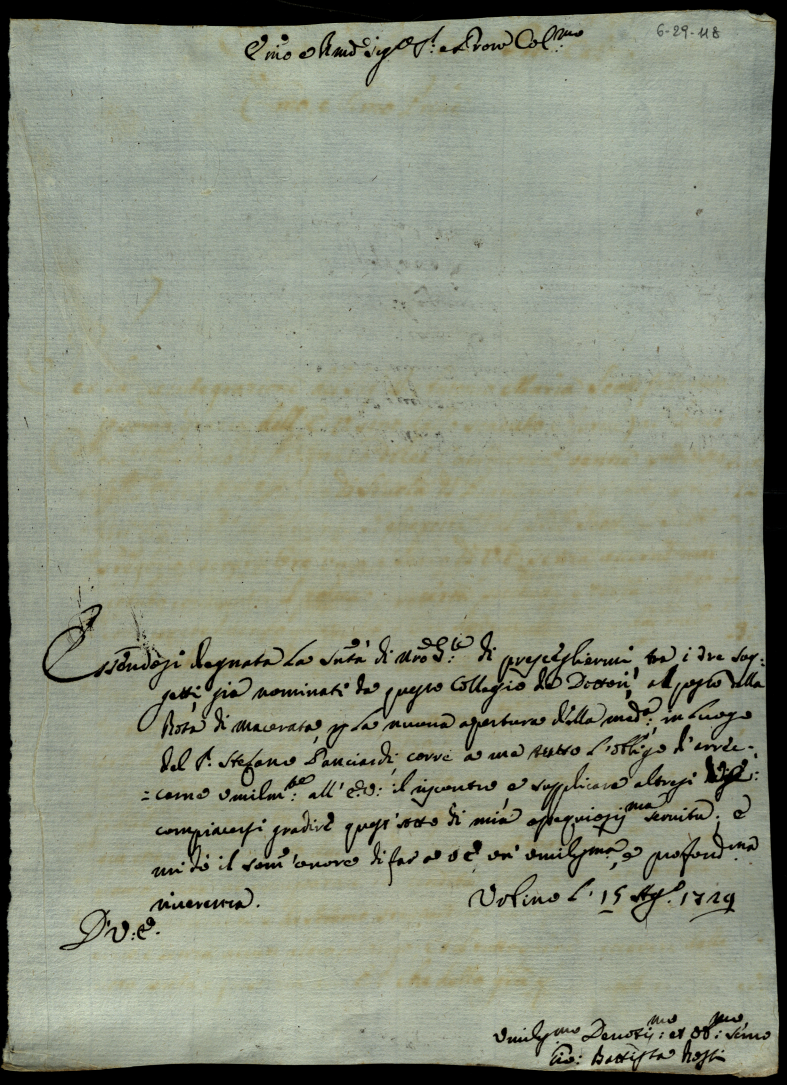 6-29-118
Emo e Rmo Sig.re P.re e Prone Col:mo
Essendosi degnata la Sntà di Nro Sig:re di prescegliermi, tra i tre sog:
getti già nominati da questo Collegio de Dottori, al posto della
Rota di Macerata, p la nuova apertura della med:a, in luogo
del S.r Stefano Panciardi, corre a me tutto l'obligo d'arrec:
=carne umilm:te all' E:V: il riscontro e supplicare altresì
compiacersi gradire quest'atto di mia ossequiosis:ma servitù; e
mi dò il som'onore di far a V E. un' umiliss:ma, e profond:ma
riverenza.
Urbino li 15 Ag.to 1729
D'V:E:
Umiliss:mo Devotis:mo et Ob:mo Servo
Gio: Battista Rosti